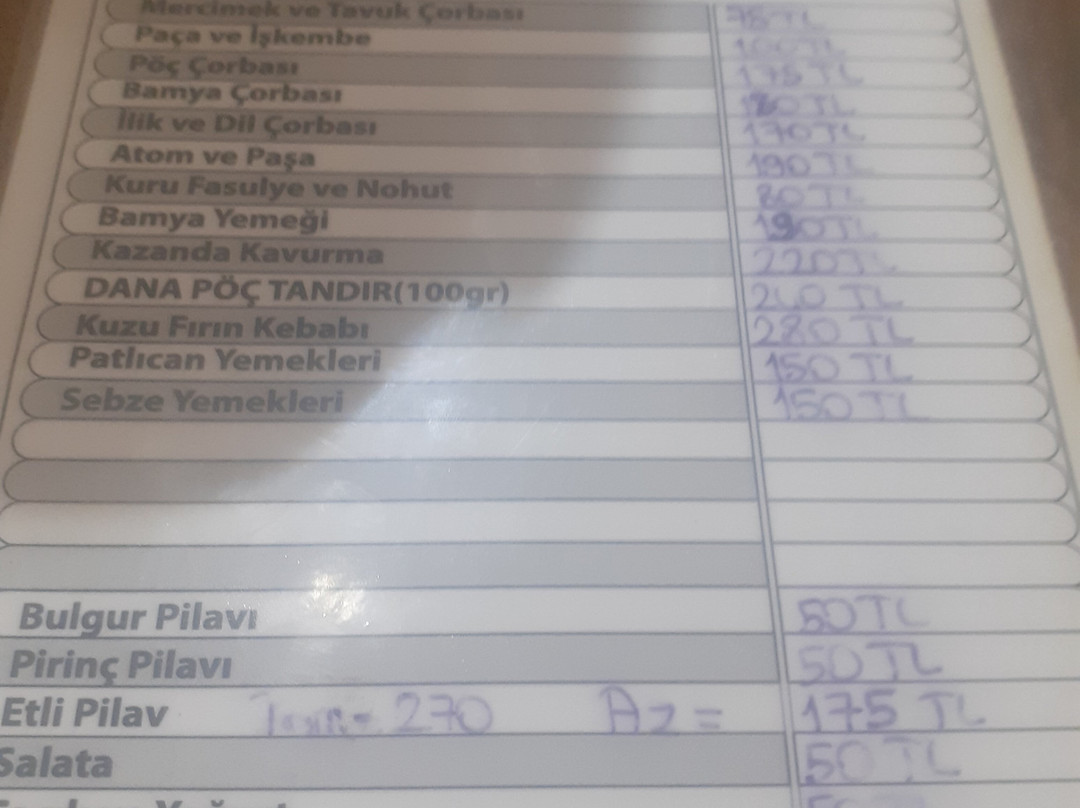 Mercimek ve Tavuk Çorbası 75 TL
Paça ve İşkembe 100 TL
Pöç Çorbası 175 TL
Bamya Çorbası 180 TL
İlik ve Dil Çorbası 170 TL
Atom ve Paşa 190 TL
Kuru Fasulye ve Nohut 80 TL
Bamya Yemeği 190 TL
Kazanda Kavurma 220 TL
DANA PÖÇ TANDIR(100gr) 240 TL
Kuzu Fırın Kebabı 280 TL
Patlıcan Yemekleri 150 TL
Sebze Yemekleri 150 TL
Bulgur Pilavı 50 TL
Pirinç Pilavı 50 TL
Etli Pilav 270 Az = 175 TL
Salata 50 TL